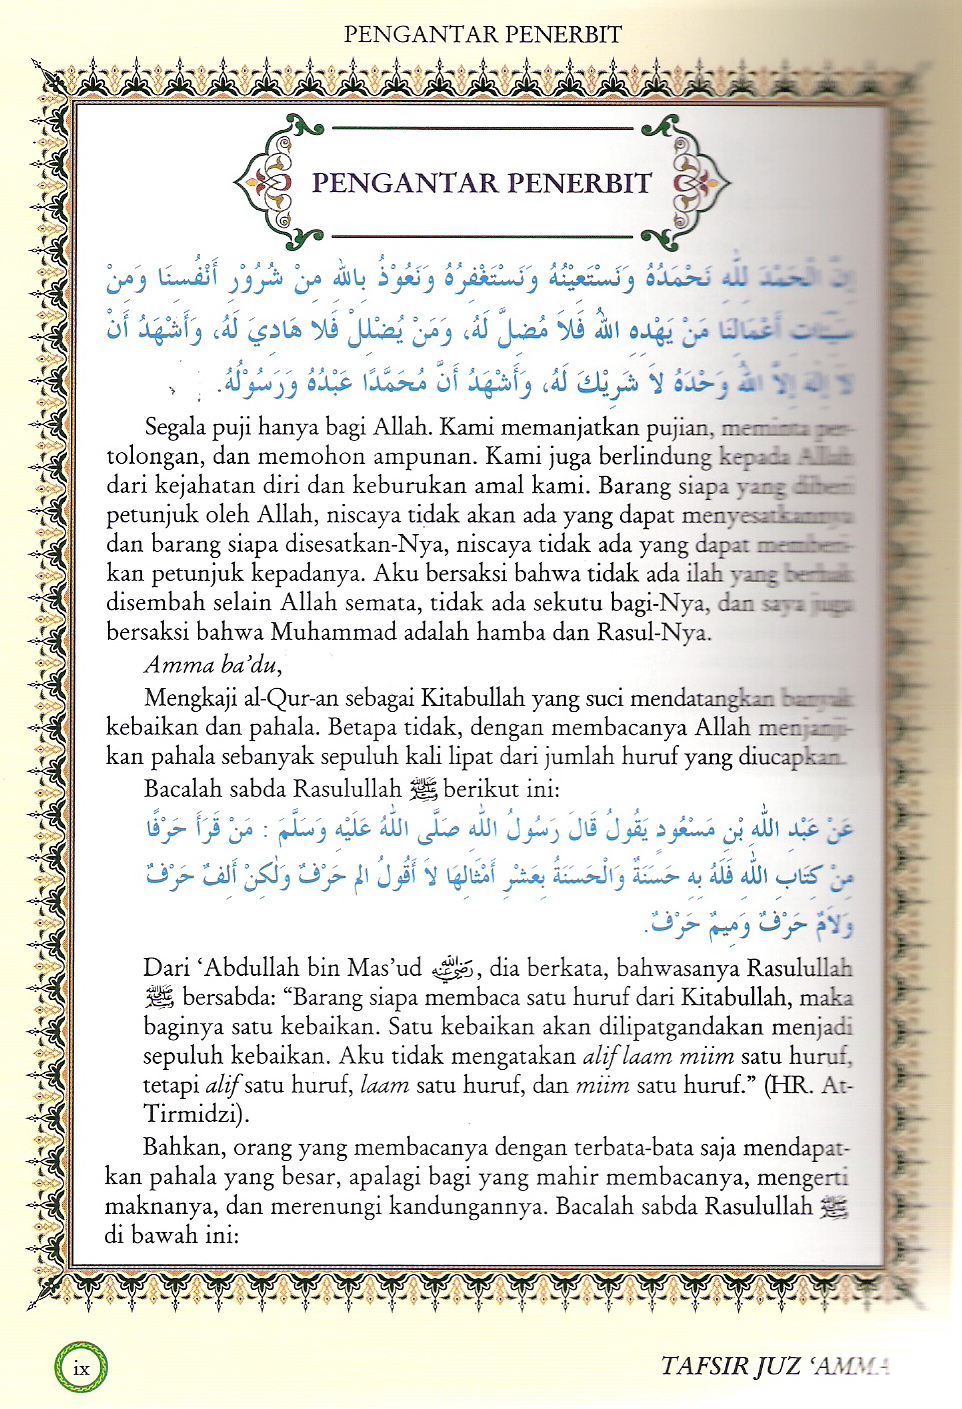 PENGANTAR PENERBIT
PENGANTAR PENERBIT
إِنَّ الْحَمْدَ لِلَّهِ نَحْمَدُهُ وَنَسْتَعِيْنُهُ وَنَسْتَغْفِرُهُ وَنَعُوْذُ بِاللهِ مِنْ شُرُوْرِ أَنْفُسِنَا وَمِنْ
سَيِّئَاتِ أَعْمَالِنَا مَنْ يَهْدِهِ اللهُ فَلاَ مُضِلَّ لَهُ، وَمَنْ يُضْلِلْ فَلاَ هَادِيَ لَهُ، وَأَشْهَدُ أَنْ
لاَ إِلَهَ إِلاَّ اللهُ وَحْدَهُ لاَ شَرِيْكَ لَهُ، وَأَشْهَدُ أَنَّ مُحَمَّدًا عَبْدُهُ وَرَسُوْلُهُ.
Segala puji hanya bagi Allah. Kami memanjatkan pujian, meminta per-
tolongan, dan memohon ampunan. Kami juga berlindung kepada Allah
dari kejahatan diri dan keburukan amal kami. Barang siapa yang diberi
petunjuk oleh Allah, niscaya tidak akan ada yang dapat menyesatkannya
dan barang siapa disesatkan-Nya, niscaya tidak ada yang dapat memberi-
kan petunjuk kepadanya. Aku bersaksi bahwa tidak ada ilah yang berhak
disembah selain Allah semata, tidak ada sekutu bagi-Nya, dan saya juga
bersaksi bahwa Muhammad adalah hamba dan Rasul-Nya.
Amma ba’du,
Mengkaji al-Qur-an sebagai Kitabullah yang suci mendatangkan banyak
kebaikan dan pahala. Betapa tidak, dengan membacanya Allah menjanji-
kan pahala sebanyak sepuluh kali lipat dari jumlah huruf yang diucapkan.
Bacalah sabda Rasulullah ﷺ berikut ini:
عَنْ عَبْدِ اللهِ بْنِ مَسْعُودٍ يَقُولُ قَالَ رَسُولُ اللهِ صَلَّى اللهُ عَلَيْهِ وَسَلَّمَ : مَنْ قَرَأَ حَرْفًا
مِنْ كِتَابِ اللهِ فَلَهُ بِهِ حَسَنَةٌ وَالْحَسَنَةُ بِعَشْرِ أَمْثَالِهَا لاَ أَقُولُ الم حَرْفٌ وَلَكِنْ أَلِفٌ حَرْفٌ
وَلاَمٌ حَرْفٌ وَمِيمٌ حَرْفٌ.
Dari ‘Abdullah bin Mas’ud رضي الله عنه, dia berkata, bahwasanya Rasulullah
ﷺ bersabda: “Barang siapa membaca satu huruf dari Kitabullah, maka
baginya satu kebaikan. Satu kebaikan akan dilipatgandakan menjadi
sepuluh kebaikan. Aku tidak mengatakan alif laam miim satu huruf,
tetapi alif satu huruf, laam satu huruf, dan miim satu huruf.” (HR. At-
Tirmidzi).
Bahkan, orang yang membacanya dengan terbata-bata saja mendapat-
kan pahala yang besar, apalagi bagi yang mahir membacanya, mengerti
maknanya, dan merenungi kandungannya. Bacalah sabda Rasulullah ﷺ
di bawah ini:
ix
TAFSIR JUZ ‘AMMA